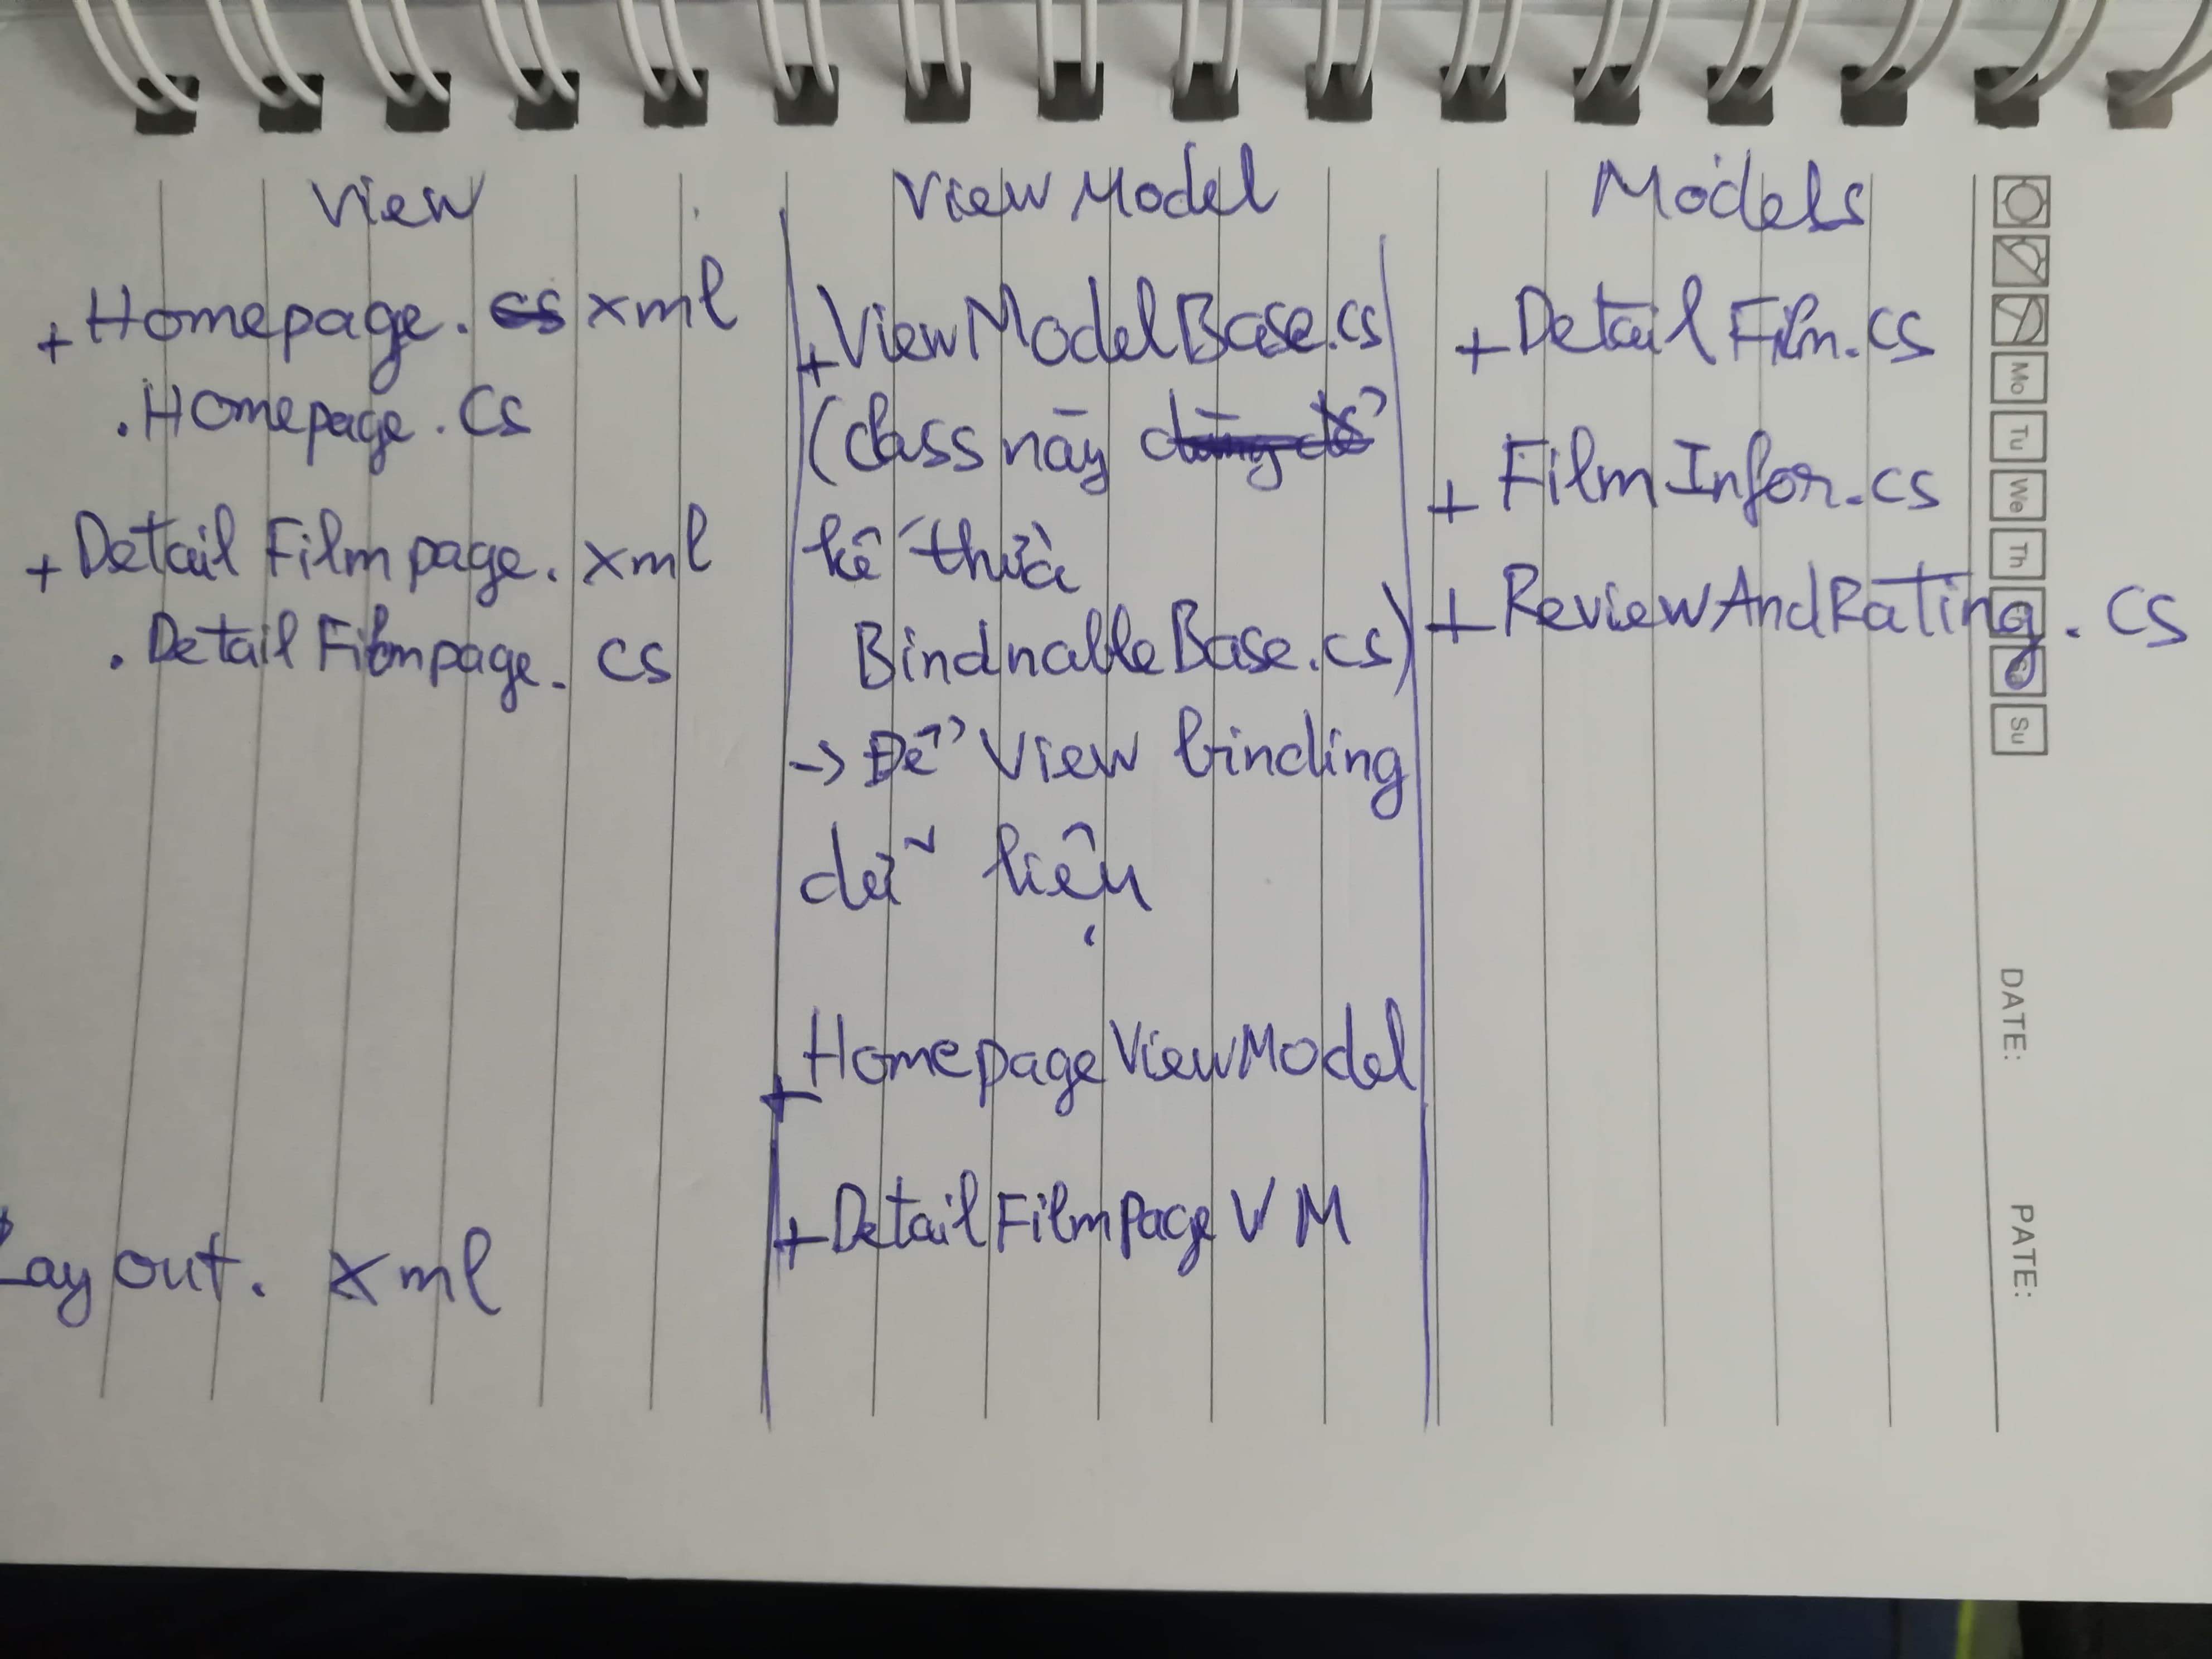 View
+ Homepage. xml
. Homepage. cs
+ Detail Film page. xml
. Detail Filmpage. cs
Layout. xml
View Model
+ ViewModelBase.cs
(class này dùng để
kế thừa
BindnableBase.cs)
-> Để View binding
dữ liệu
+ HomepageViewModel
+ DetailFilmPage VM
Models
+ Detail Film.cs
+ FilmInfor.cs
+ ReviewAndRating. cs
Mo
Tu
We
Th
Sa
Su
DATE:
PATE: